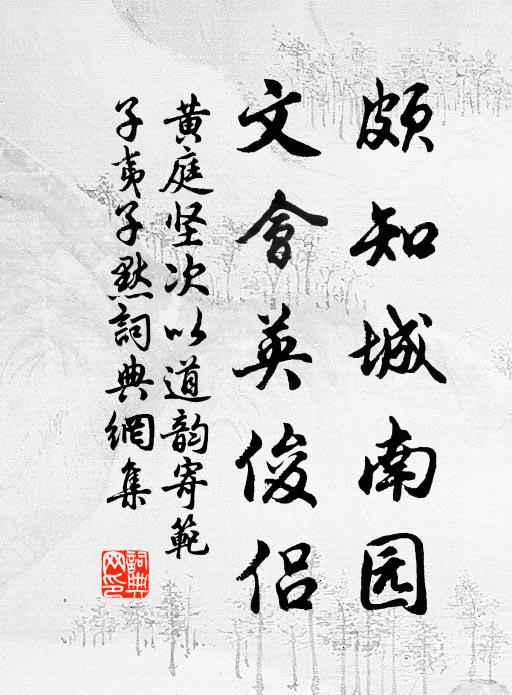 颇知城南园
文會英俊侣
黄庭坚次以道韵寄範
子夷子默詞典網集
詞典网印